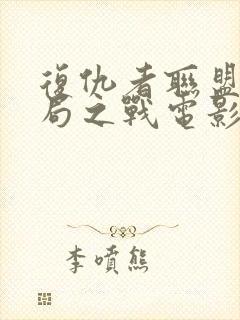 復仇者聯盟
局之戰電影
李噴熊